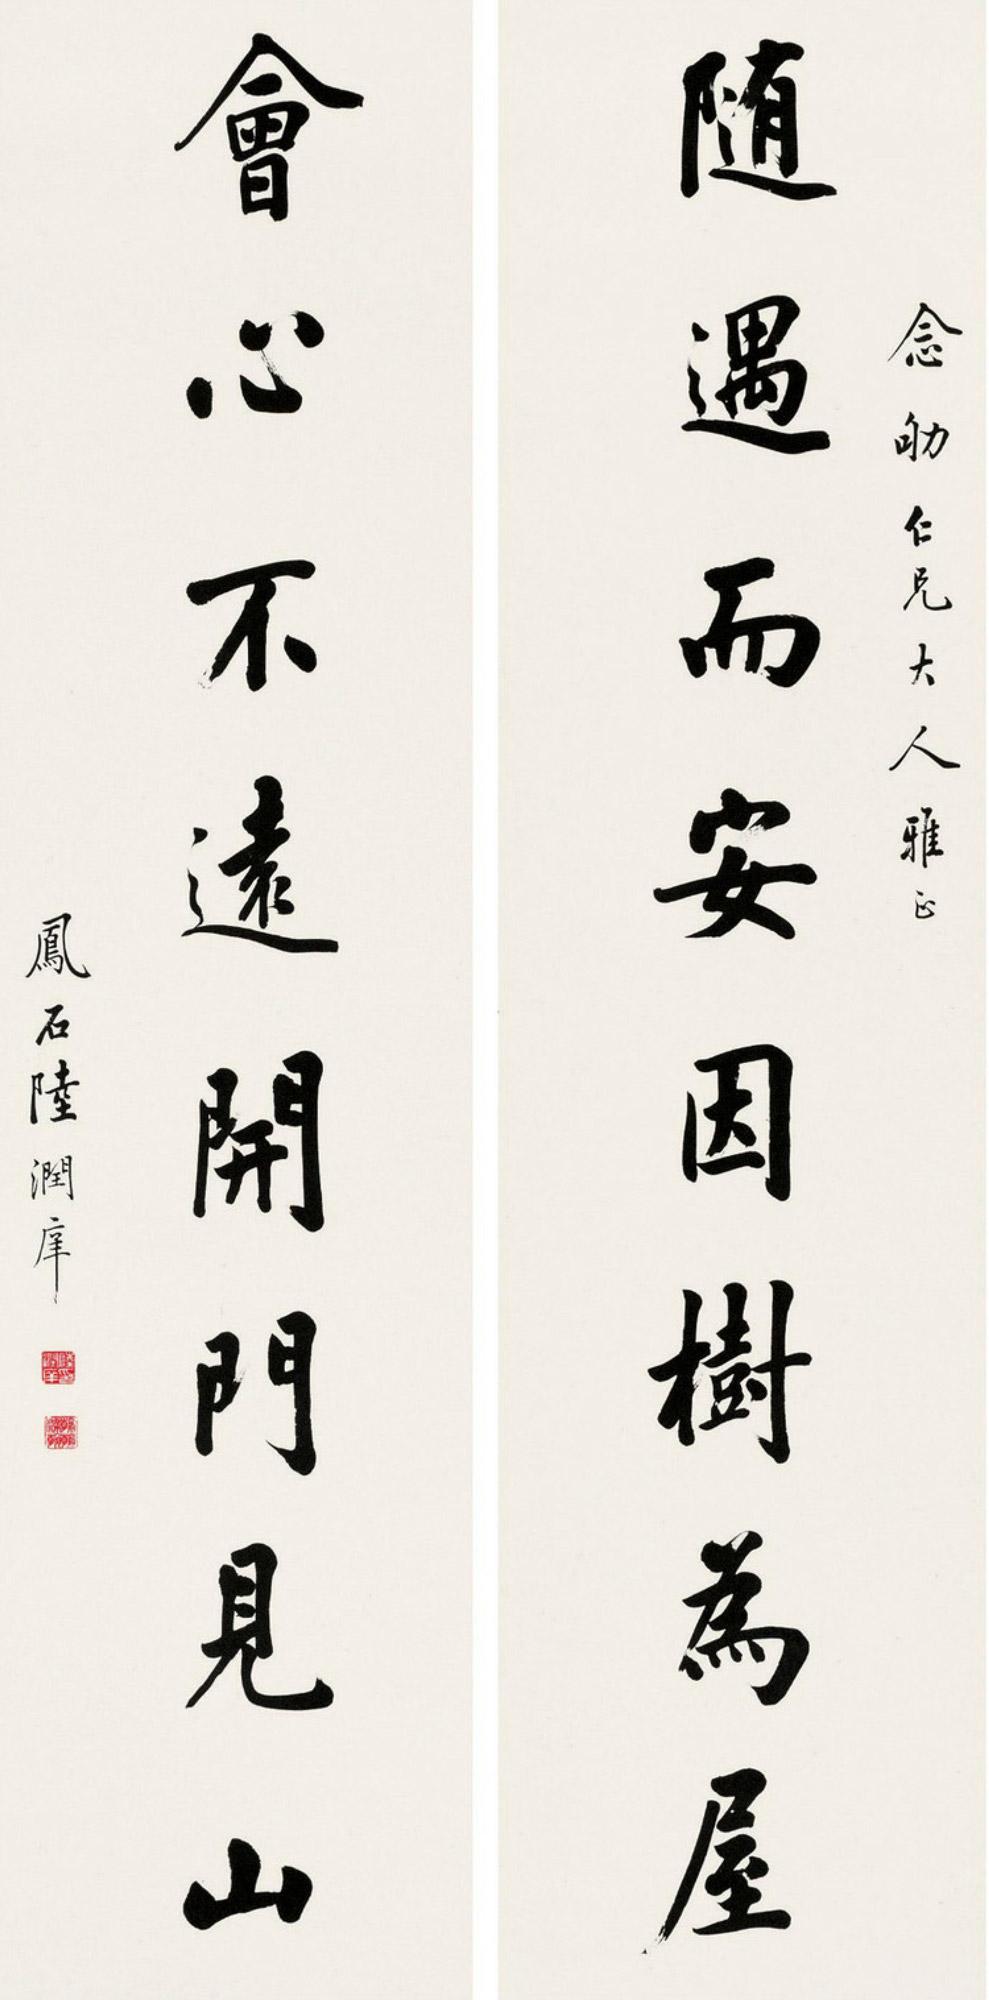 念劬仁兄大人雅正
随遇而安因樹為屋
會心不遠開門見山
鳳石陸潤庠